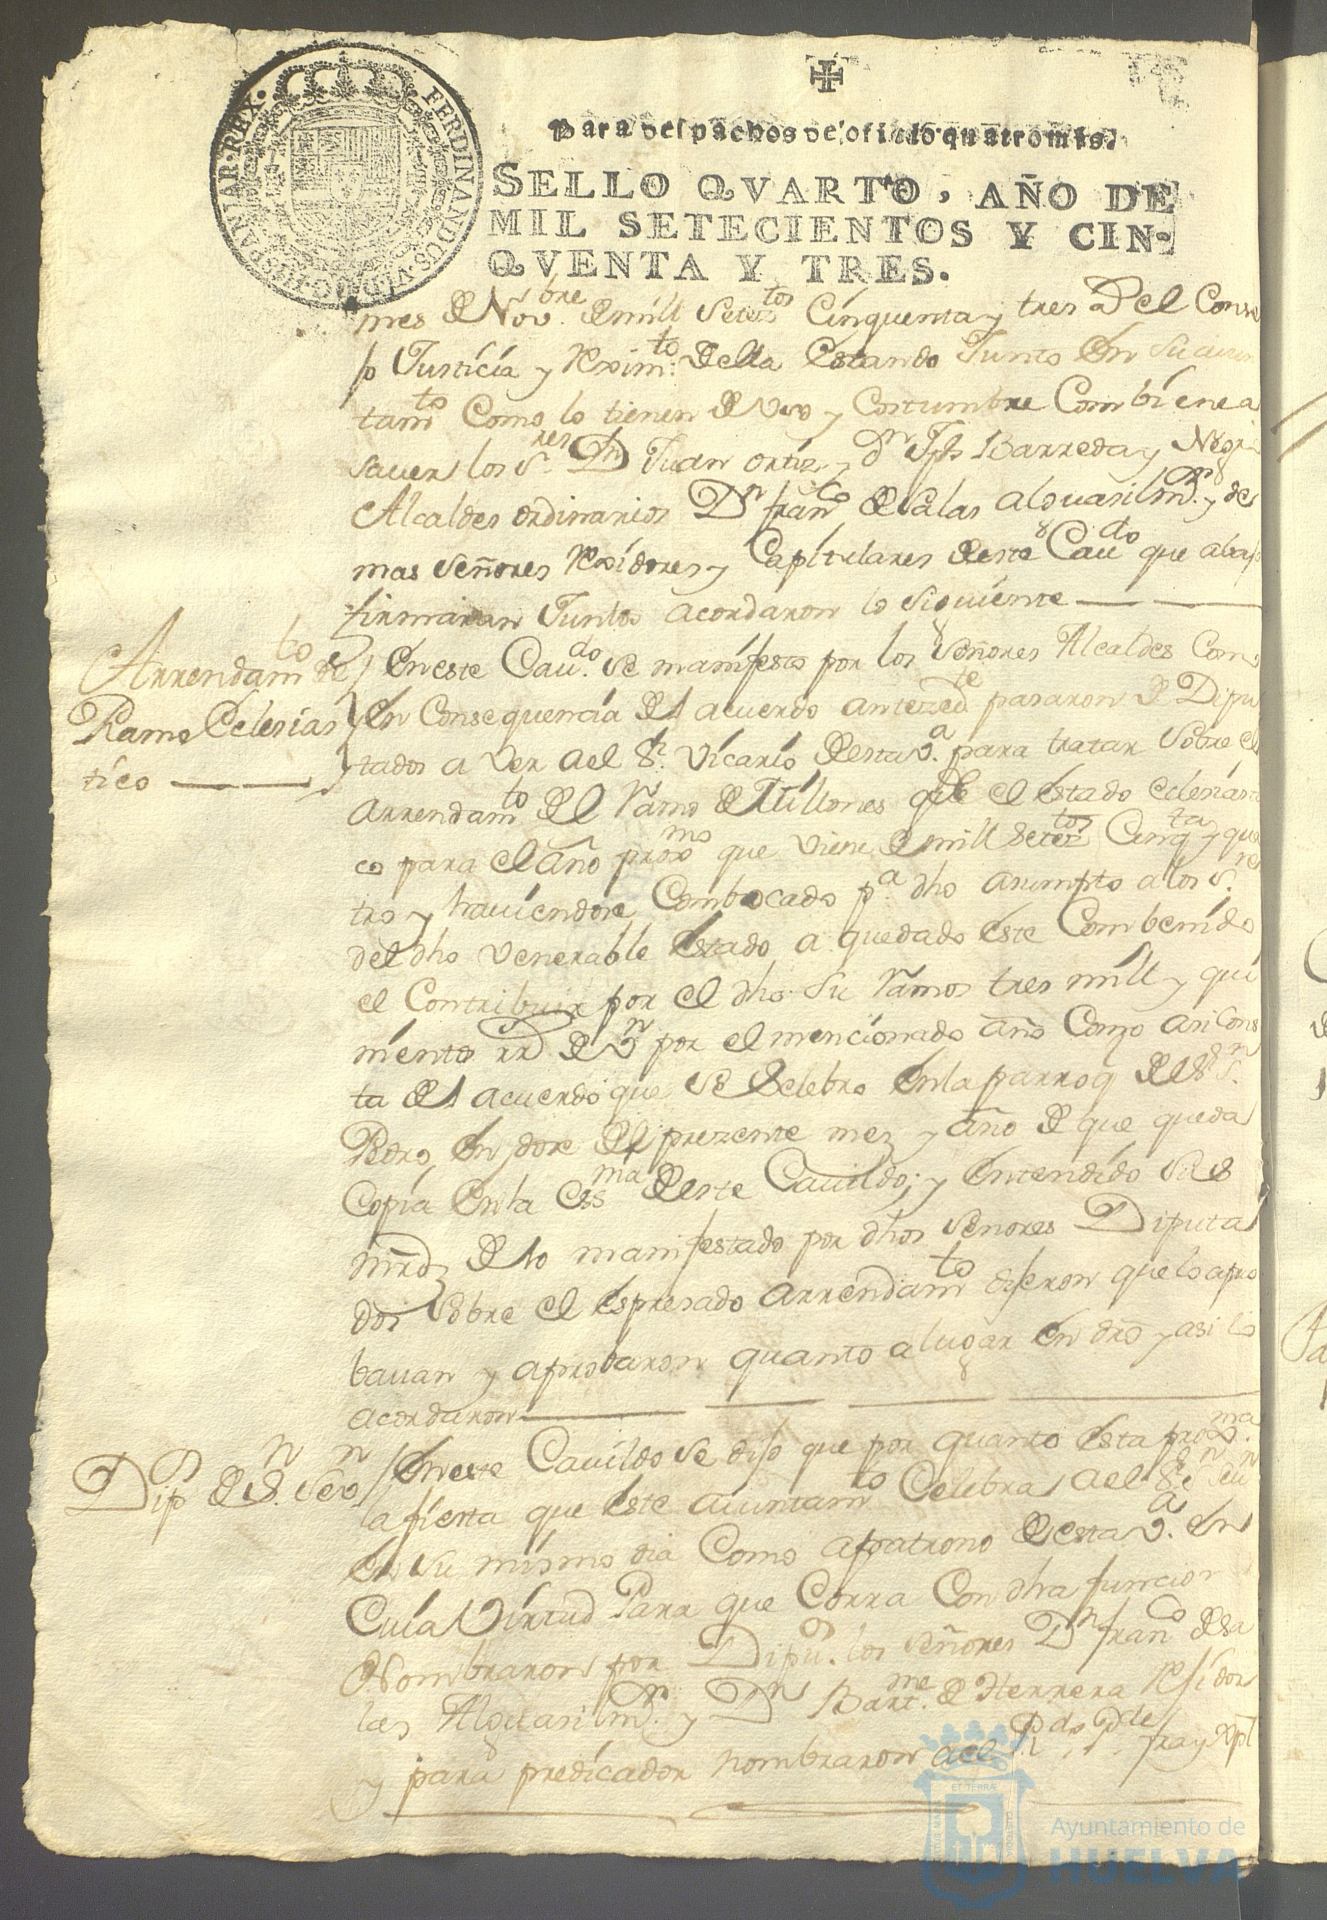 FERDINANDUS VI D G HISPANIAR REX
Para despachos de oficio quatro mrs.
SELLO QVARTO, AÑO DE
MIL SETECIENTOS Y CIN-
QVENTA Y TRES.
mes de Novbre de mill setezs tos Cinquenta y tres el Conse
jo Justicia y Reximto della Estando Junto En Su aiun
tamto Como lo tienen de Uso y Costumbre Combiene a
saver los Sres Dn Juan Ortiz y dn Jph Barreda y Negr
Alcaldes ordinarios Dn franco de Salas alguasil mr y de
mas Señores Rexidores y Capitulares deste Caudo que abajo
firmaran Juntos acordaron lo siguiente
Arrendamto de
Ramo Eclesias
tico
En este Caudo se manifesto por los Señores Alcaldes Como
En Consequencia del acuerdo antezedte pasaron de Dipu
tados a Ver a el Sr Vicario desta Va para tratar Sobre el
Arrendamto del Ramo de Millones que el Estado eclesiasti
co para el año proxmo que viene de mill setez tos Cinqta y qua
tro y haviendose Combocado pa dho asumpto a los Sres
del dho Venerable Estado a quedado este Combenido
el Contribuir por el dho su Ramos tres mill y qui
niento rs de Vn por el mencionado año Como asi Cons
ta del acuerdo que se Zelebro En la parroq del Sr Sn
Pedro en doze del prezente mes y año de que queda
Copia En la Essma deste Cavildo; y Entendido Sus
mrds de lo manifestado por dhos Señores Diputa
dos Sobre el Espresado Arrendamto dijeron que lo apro
bavan y aprobaron quanto a lugar En dro y asi lo
acordaron
Dip de Sn Sevn
En este Cavildo se dijo que por quanto Esta proxma
la fiesta que este aiuntamto Celebra a el Sr Sn Sevn
En su mismo dia Como a patrono de esta Va En
Cuia Virtud Para que Corra Con dha funcion
Nombraron por Dipuos los Señores Dn franco de Sa
las Alguasil mr y Dn Bartme de Herrera Rejidor
y para predicador nombraron a el Rdo Pde fray Xptl
Ayuntamiento de
HUELVA